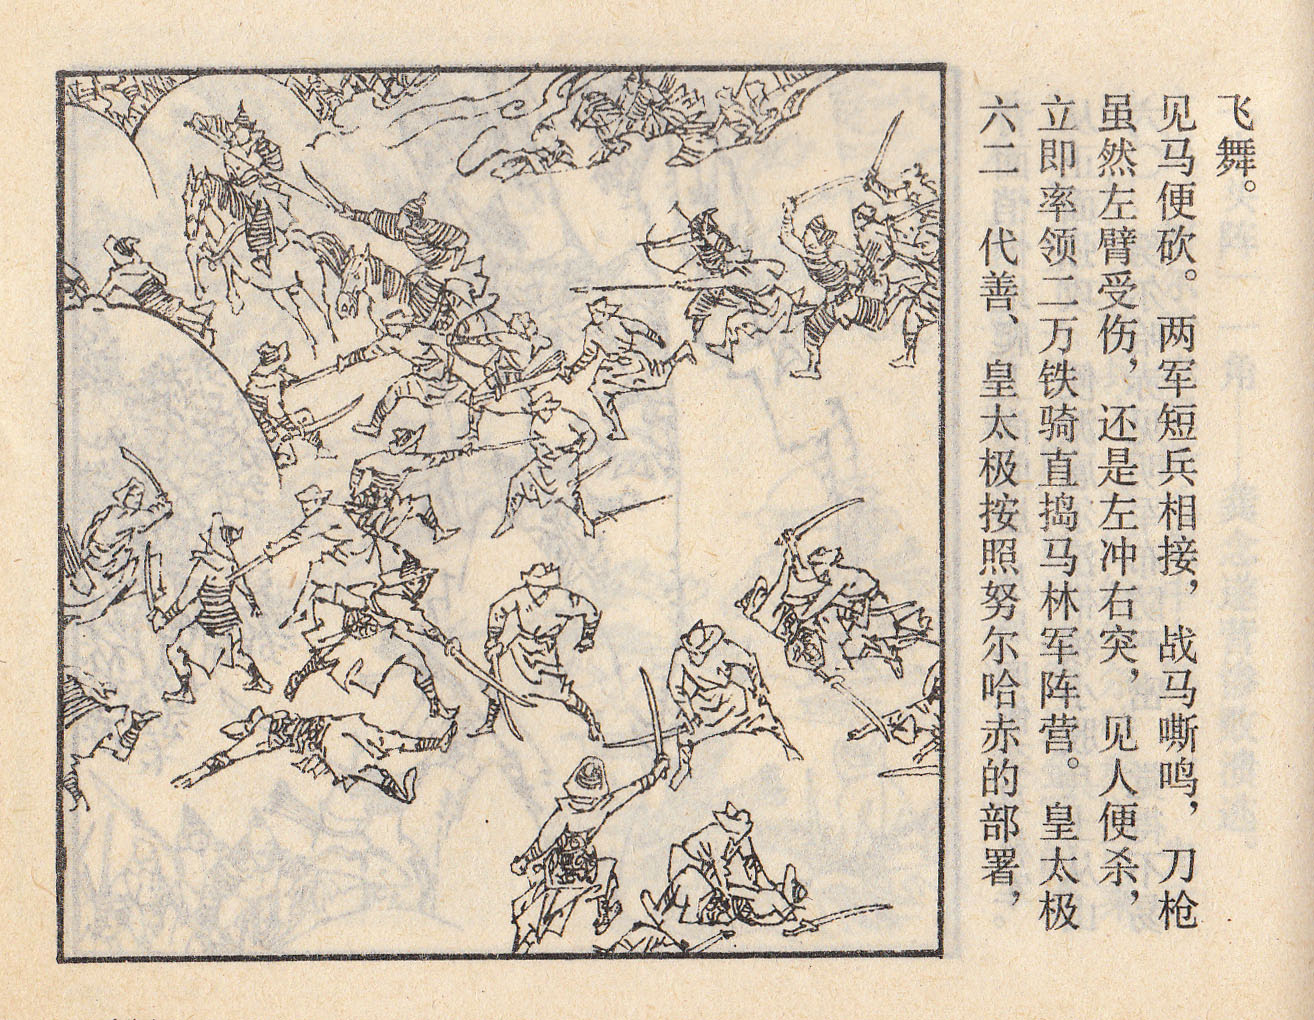 六二 代善、皇太极按照努尔哈赤的部署，
立即率领二万铁骑直捣马林军阵营。皇太极
虽然左臂受伤，还是左冲右突，见人便杀，
见马便砍。两军短兵相接，战马嘶鸣，刀枪
飞舞。